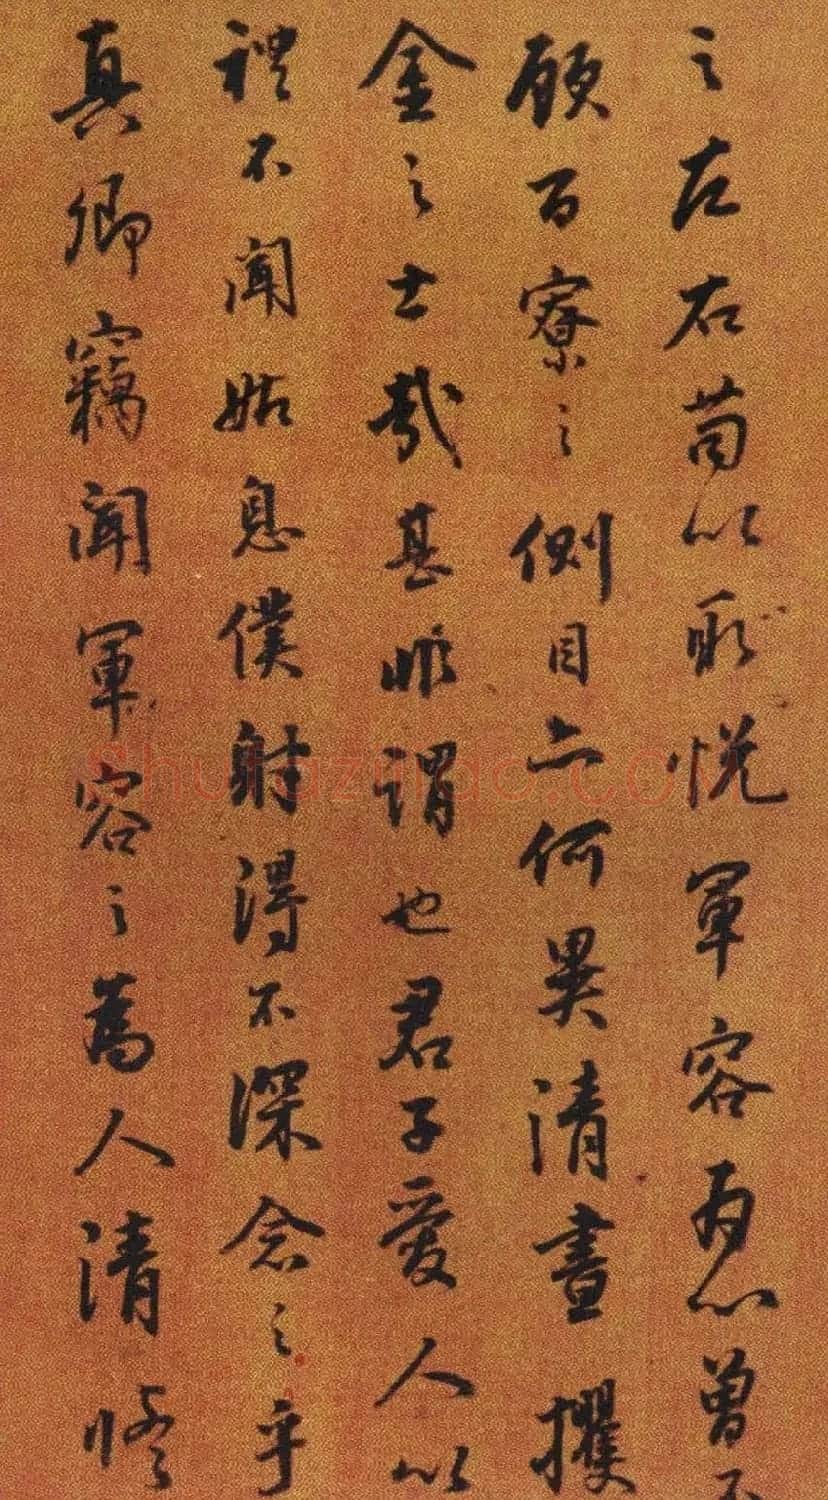 之左右苟以取悦軍容為心曾不
顧百寮之側目亦何異清晝攫
金之士哉甚非謂也君子愛人以
禮不聞姑息僕射得不深念之乎
真卿竊聞軍容之為人清修
shufaziliao.com